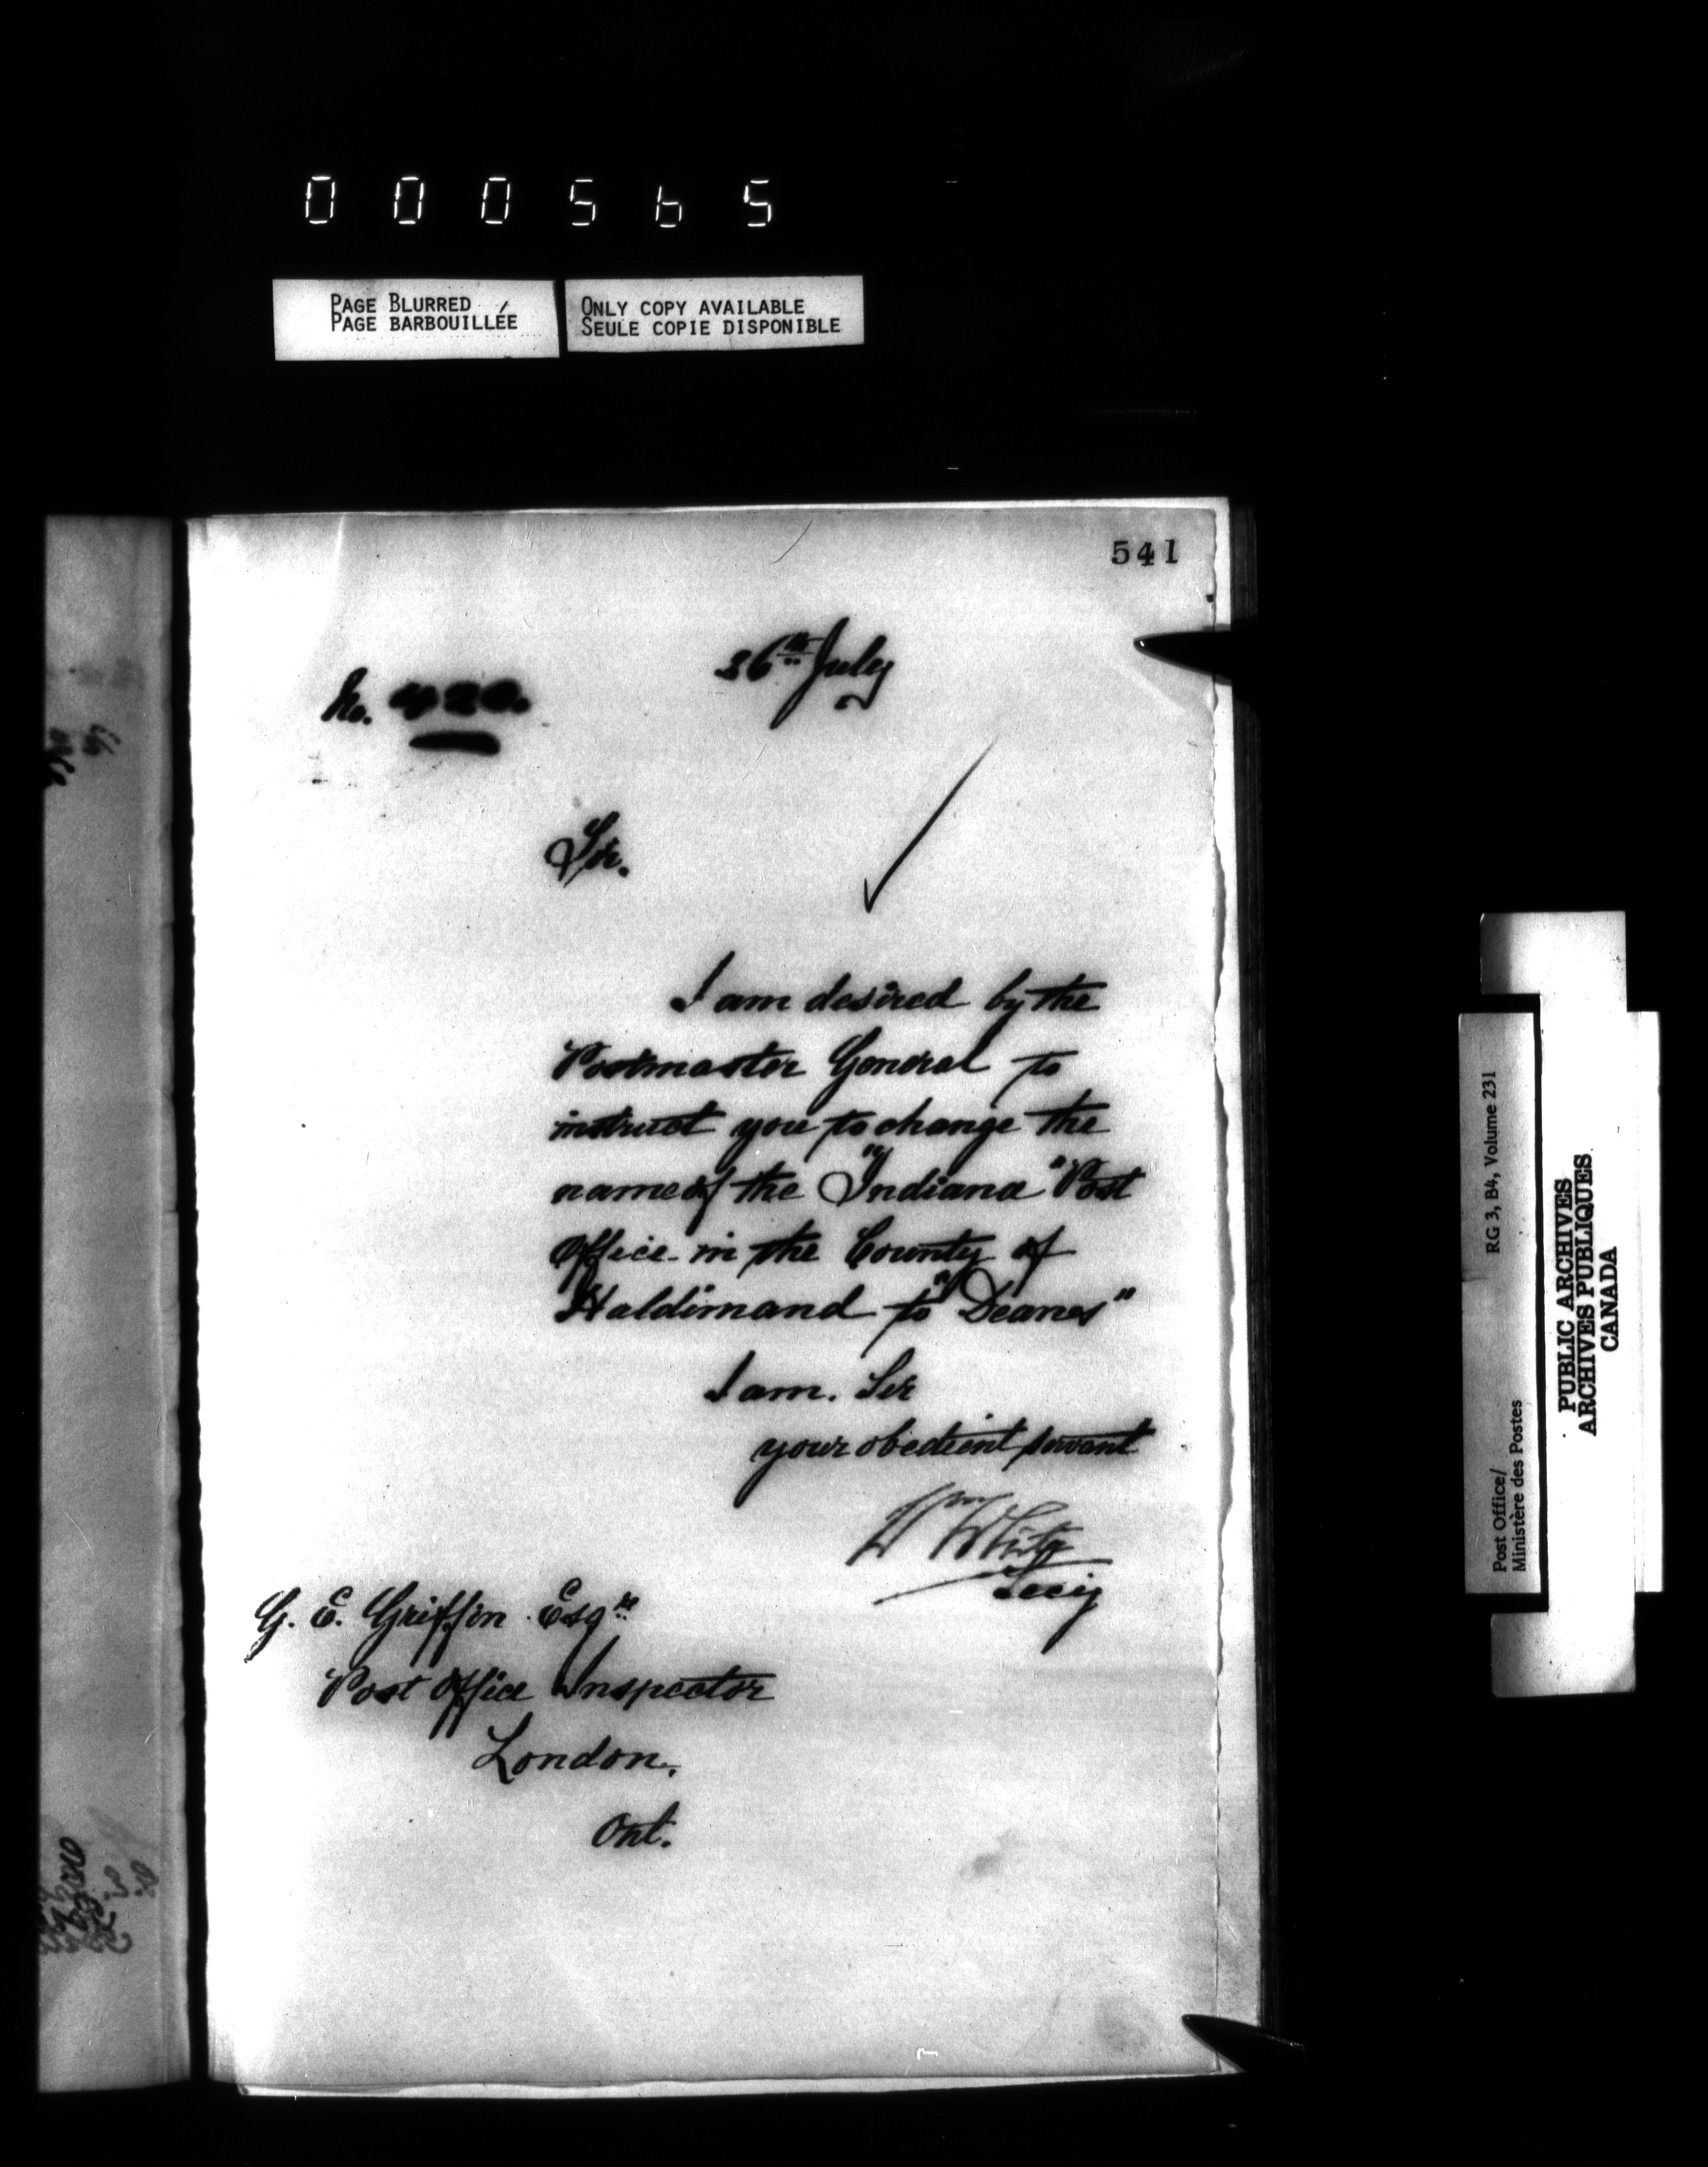 000565
PAGE BLURRED
PAGE BARBOUILLÉE
ONLY COPY AVAILABLE
SEULE COPIE DISPONIBLE
541
26th July
No. 420.
Sir.
I am desired by the
Postmaster General to
instruct you to change the
name of the "Indiana" Post
Office in the County of
Haldimand to "Deans"
I am. Sir
your obedient servant
Wm White
Secy
G. E. Griffin Esqre
Post Office Inspector
London.
Ont.
Post Office/
Ministère des Postes
RG 3, B4, Volume 231
PUBLIC ARCHIVES
ARCHIVES PUBLIQUES
CANADA